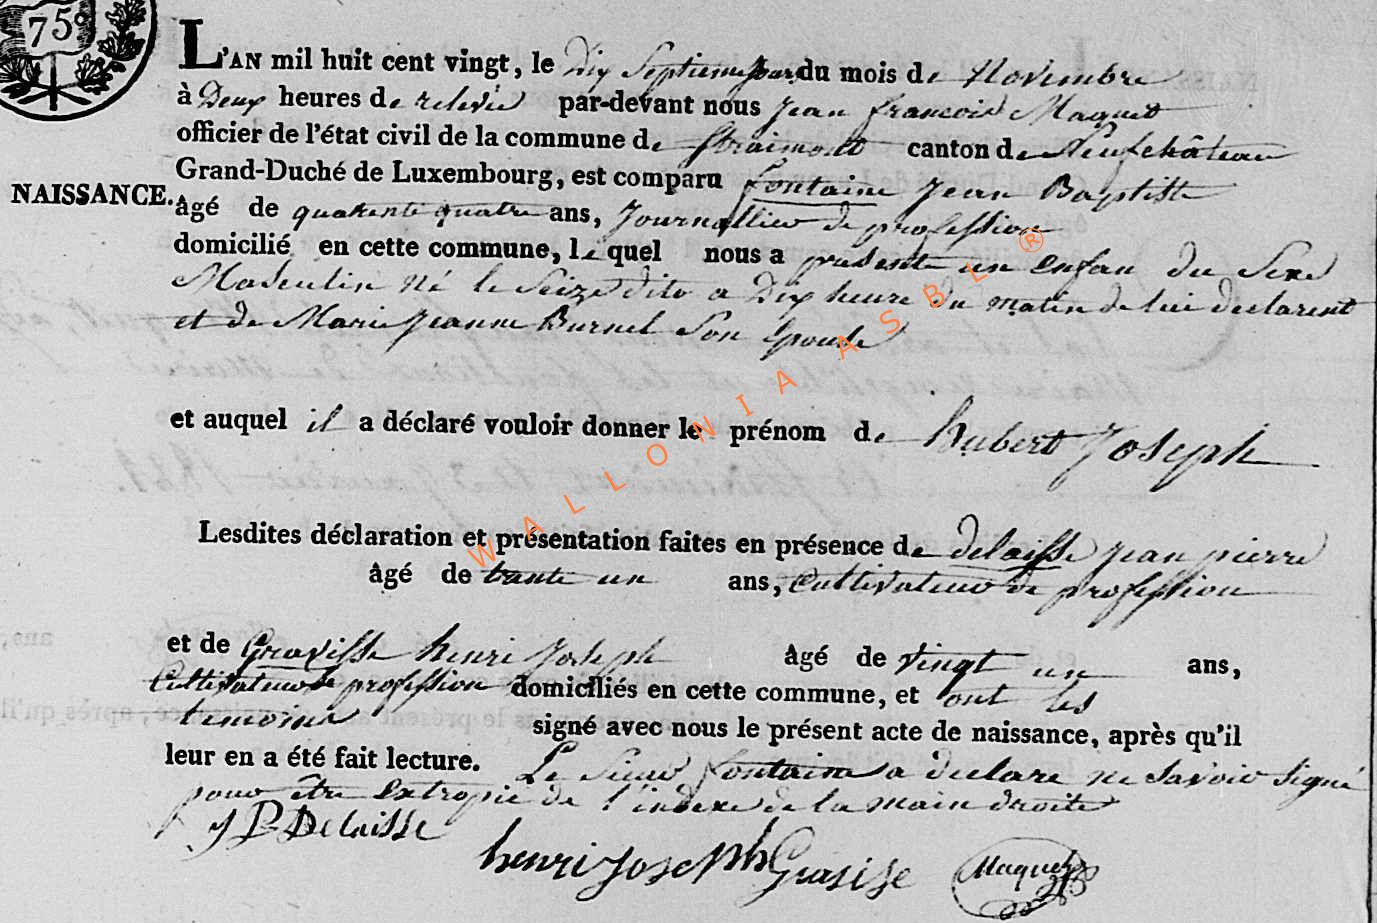 75c
L'AN mil huit cent vingt, le Dix Septiemejour du mois de Novembre
à Deux heures de relevée par-devant nous Jean francois Maquet
officier de l'état civil de la commune de Straimont canton de Neufchâteau
Grand-Duché de Luxembourg, est comparu fontaine Jean Baptiste
NAISSANCE.
âgé de quarente quatre ans, Journallier de profession
domicilié en cette commune, lequel nous a présenté un enfan du Sexe
Masculin né le Seize dito a Dix heure du matin de lui declarent
et de Marie Jeanne Burnel Son Epouse
et auquel il a déclaré vouloir donner le prénom de hubert Joseph
Lesdites déclaration et présentation faites en présence de delaisse Jean pierre
âgé de trante un ans, Cultivateur de profession
et de henri Joseph âgé de vingt un ans,
Cultivateur de profession domiciliés en cette commune, et ont les
temoins signé avec nous le présent acte de naissance, après qu'il
leur en a été fait lecture. Le Sieur fontaine a declare ne Savoir Signé
pour être Extropié de l'indexe de la main droite
J P Delaisse
henri Joseph Grasise
Maquet
WALLONIA ASBL ®